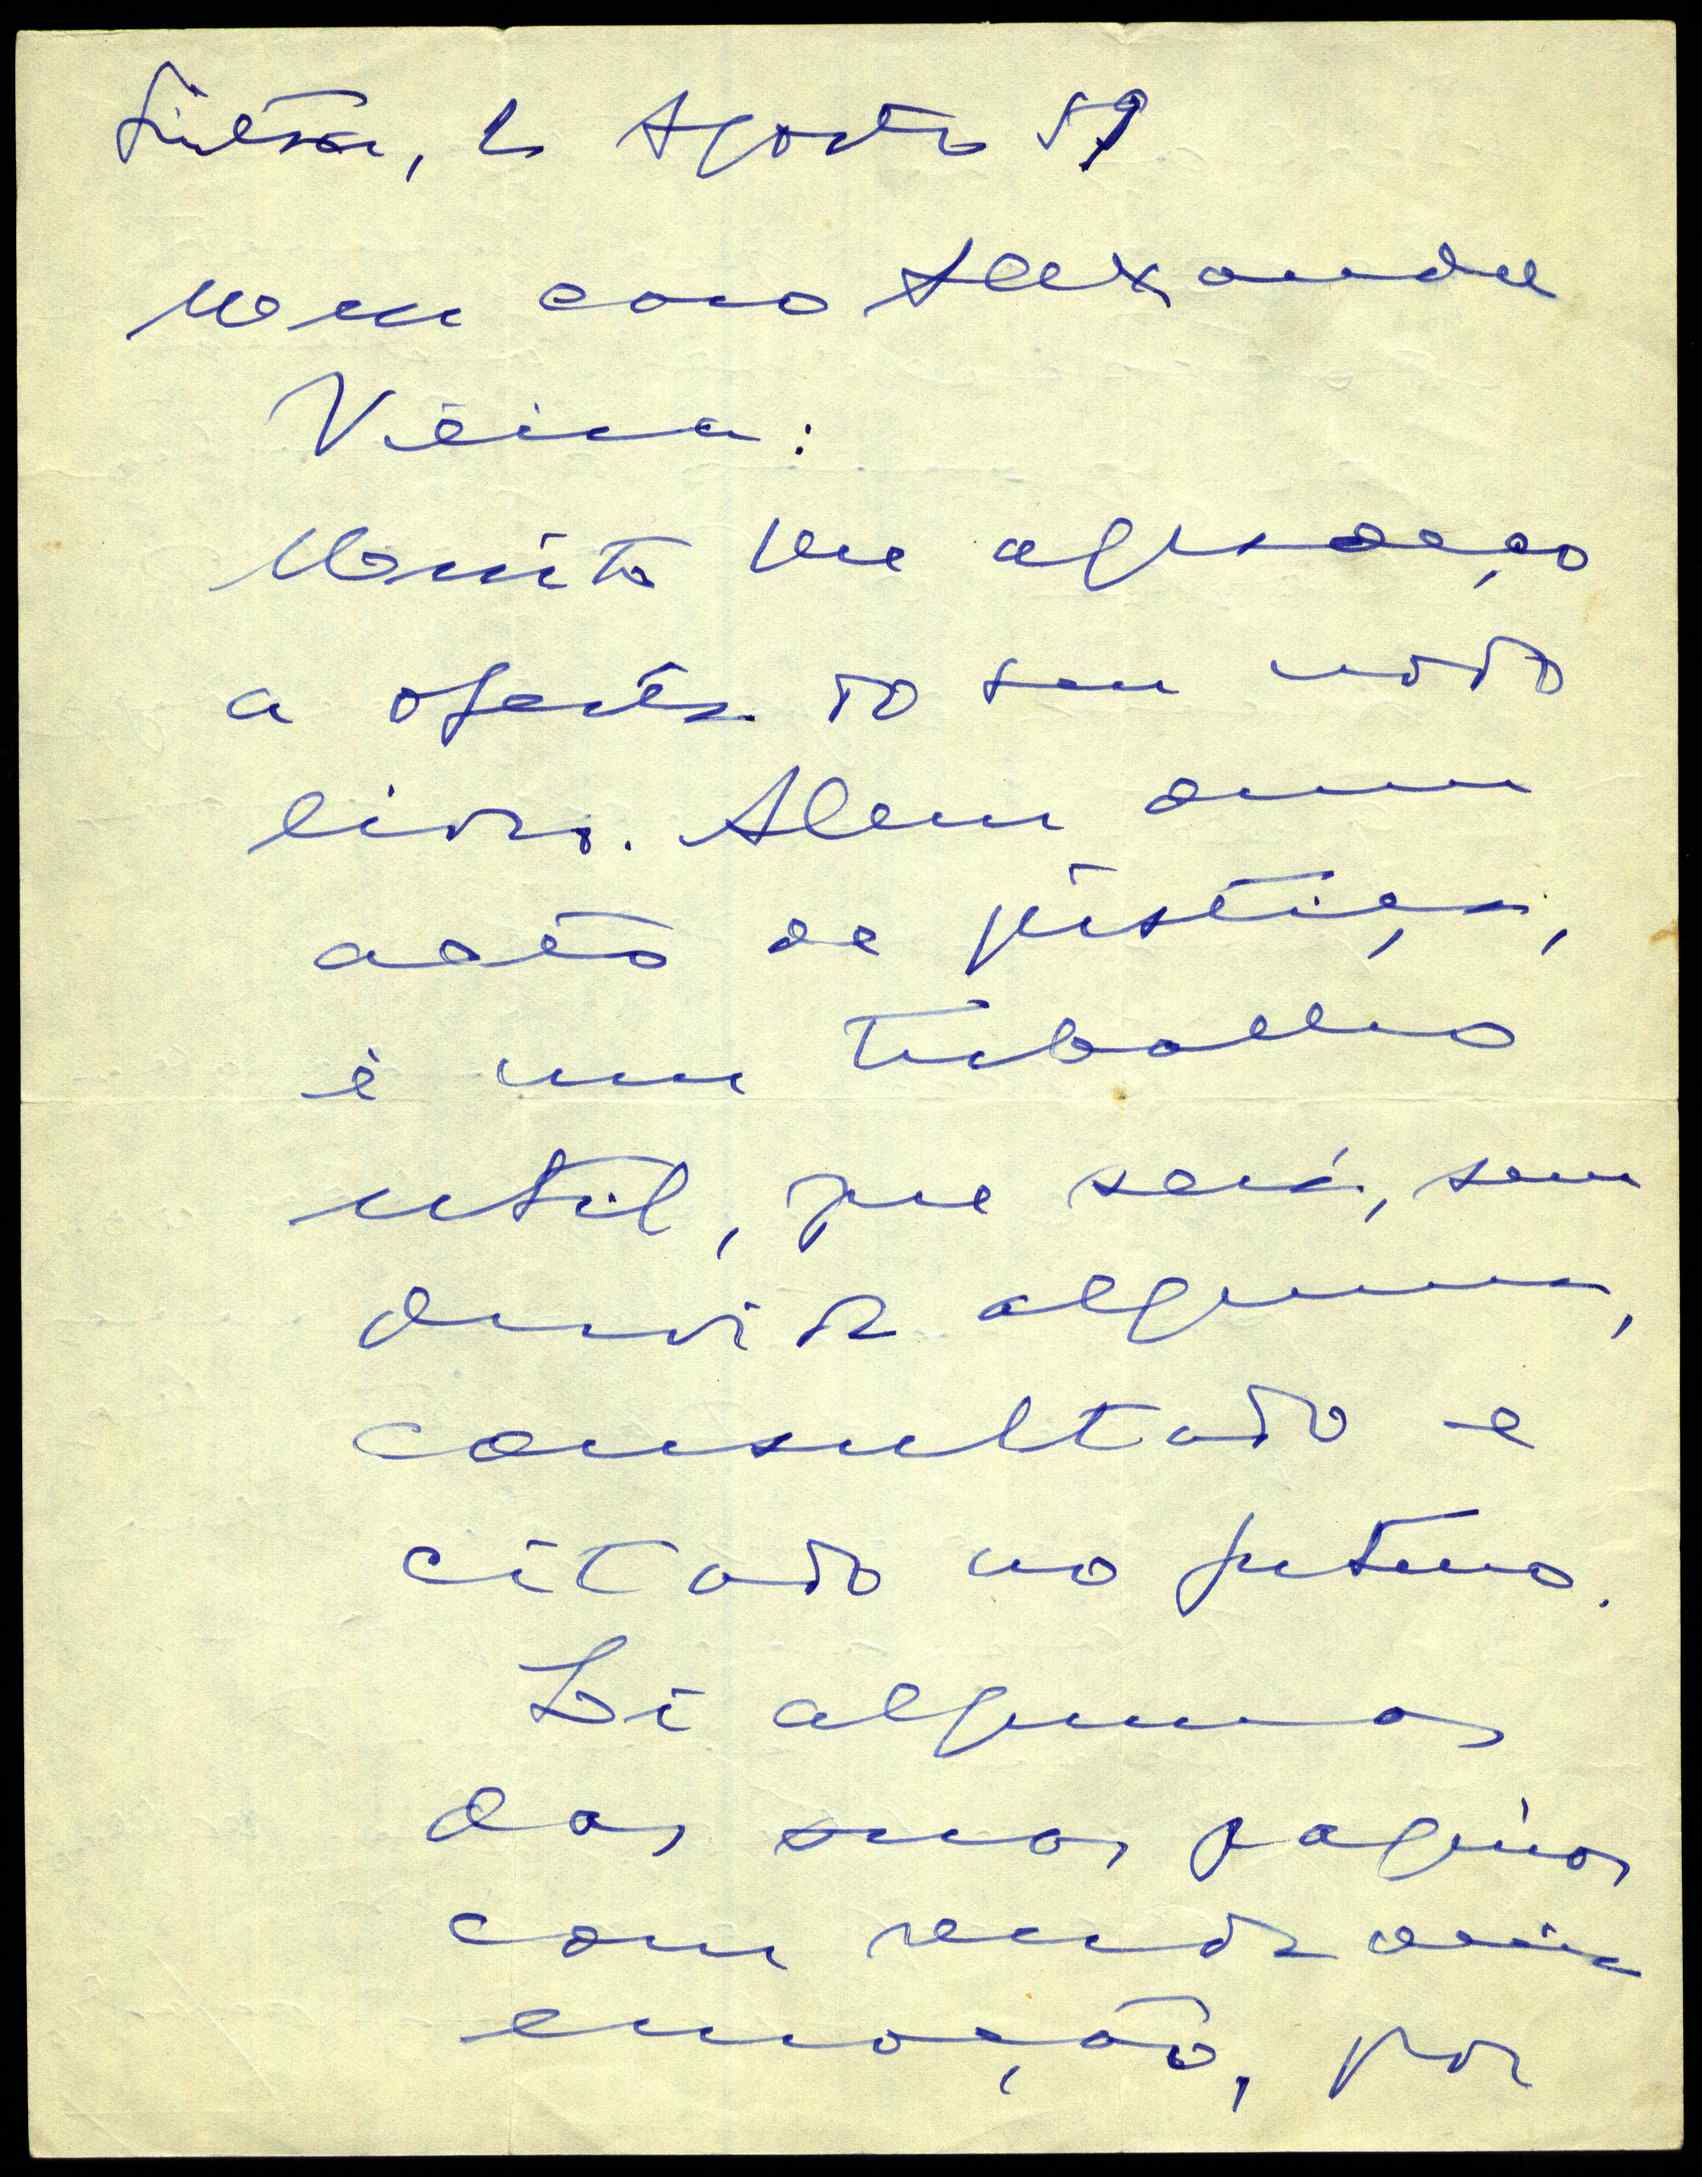 Sintra, 2 Agosto 59
Meu caro Alexandre
Vieira:
Muito lhe agradeço
a oferta do seu novo
livro. Alem dum
acto de justiça,
é um trabalho
util, que será, sem
duvida alguma,
consultado e
citado no futuro.
Li algumas
das suas paginas
com verdadeira
emoção, por